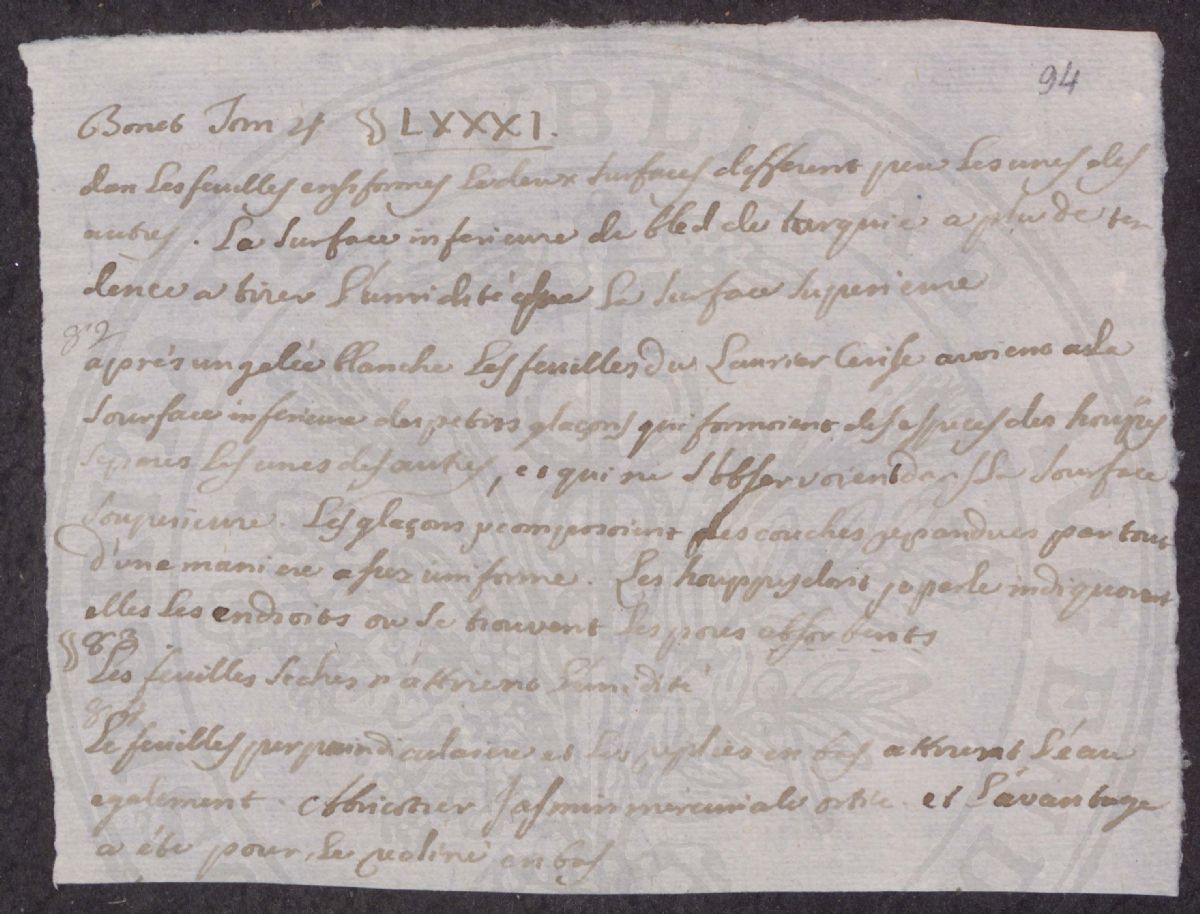 94
Bonet Tom 4 §§ LXXXI.
dan les feuilles ensiformes les deux surfaces different peu les unes des
autres. La surface inferieure de bled de turquie a plus de ten
dence a tirer l'umidité que la surface superieure
82
aprés un gelée blanche les feuilles du Laurier Cerise avoient a la
sourface inferieure des petits glaçons qui formoient des especes des houpes
separés les unes des autres, et qui ne s'observoient dans la sourface
souperieure. Les glaçons y composoient des couches repandues par tout
d'une maniere assez uniforme. Les houppes dont je parle indiquoient
elles les endroits ou se trouvent les pores absorbents
§§ 83
Les feuilles seches n'attirent l'umidité
84
Le feuilles perpaindiculaire et les pliés en bas attirent l'eau
egalement. Abricotier Jasmin mercuriale ortie. et l'avantage
a été pour le en bas